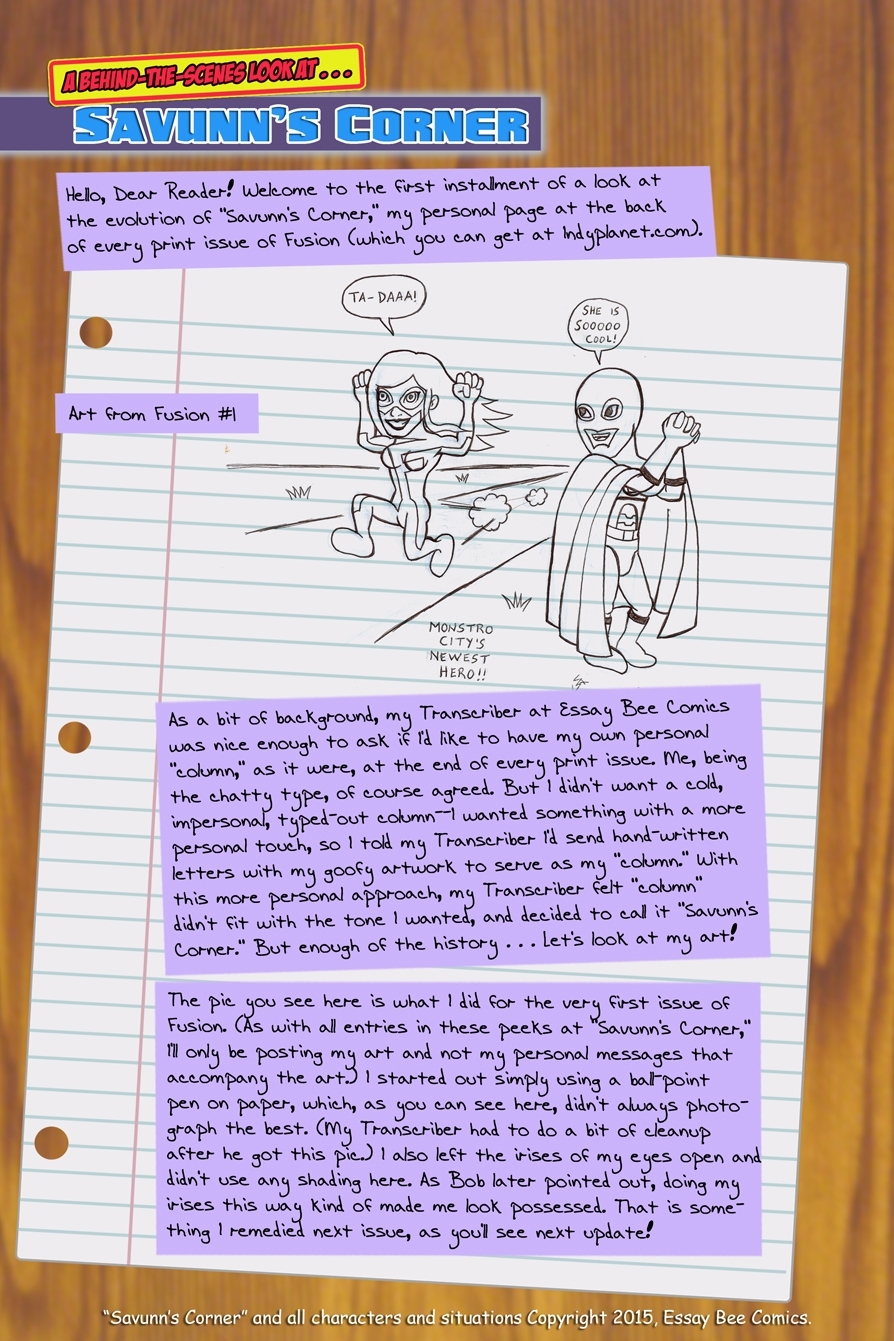 A BEHIND-THE-SCENES LOOK AT...
SAVUNN'S CORNER
Hello, Dear Reader! Welcome to the first installment of a look at
the evolution of "Savunn's Corner," my personal page at the back
of every print issue of Fusion (which you can get at Indyplanet.com).
TA-DAAA!
SHE IS
SOOOOO
COOL!
Art from Fusion #1
MONSTRO
CITY'S
NEWEST
HERO!!
As a bit of background, my Transcriber at Essay Bee Comics
was nice enough to ask if I'd like to have my own personal
"column," as it were, at the end of every print issue. Me, being
the chatty type, of course agreed. But I didn't want a cold,
impersonal, typed-out column--I wanted something with a more
personal touch, so I told my Transcriber I'd send hand-written
letters with my goofy artwork to serve as my "column." With
this more personal approach, my Transcriber felt "column"
didn't fit with the tone I wanted, and decided to call it "Savunn's
Corner." But enough of the history . . . Let's look at my art!
The pic you see here is what I did for the very first issue of
Fusion. (As with all entries in these peeks at "Savunn's Corner,"
I'll only be posting my art and not my personal messages that
accompany the art.) I started out simply using a ball-point
pen on paper, which, as you can see here, didn't always photo-
graph the best. (My Transcriber had to do a bit of cleanup
after he got this pic.) I also left the irises of my eyes open and
didn't use any shading here. As Bob later pointed out, doing my
irises this way kind of made me look possessed. That is some-
thing I remedied next issue, as you'll see next update!
"Savunn's Corner" and all characters and situations Copyright 2015, Essay Bee Comics.